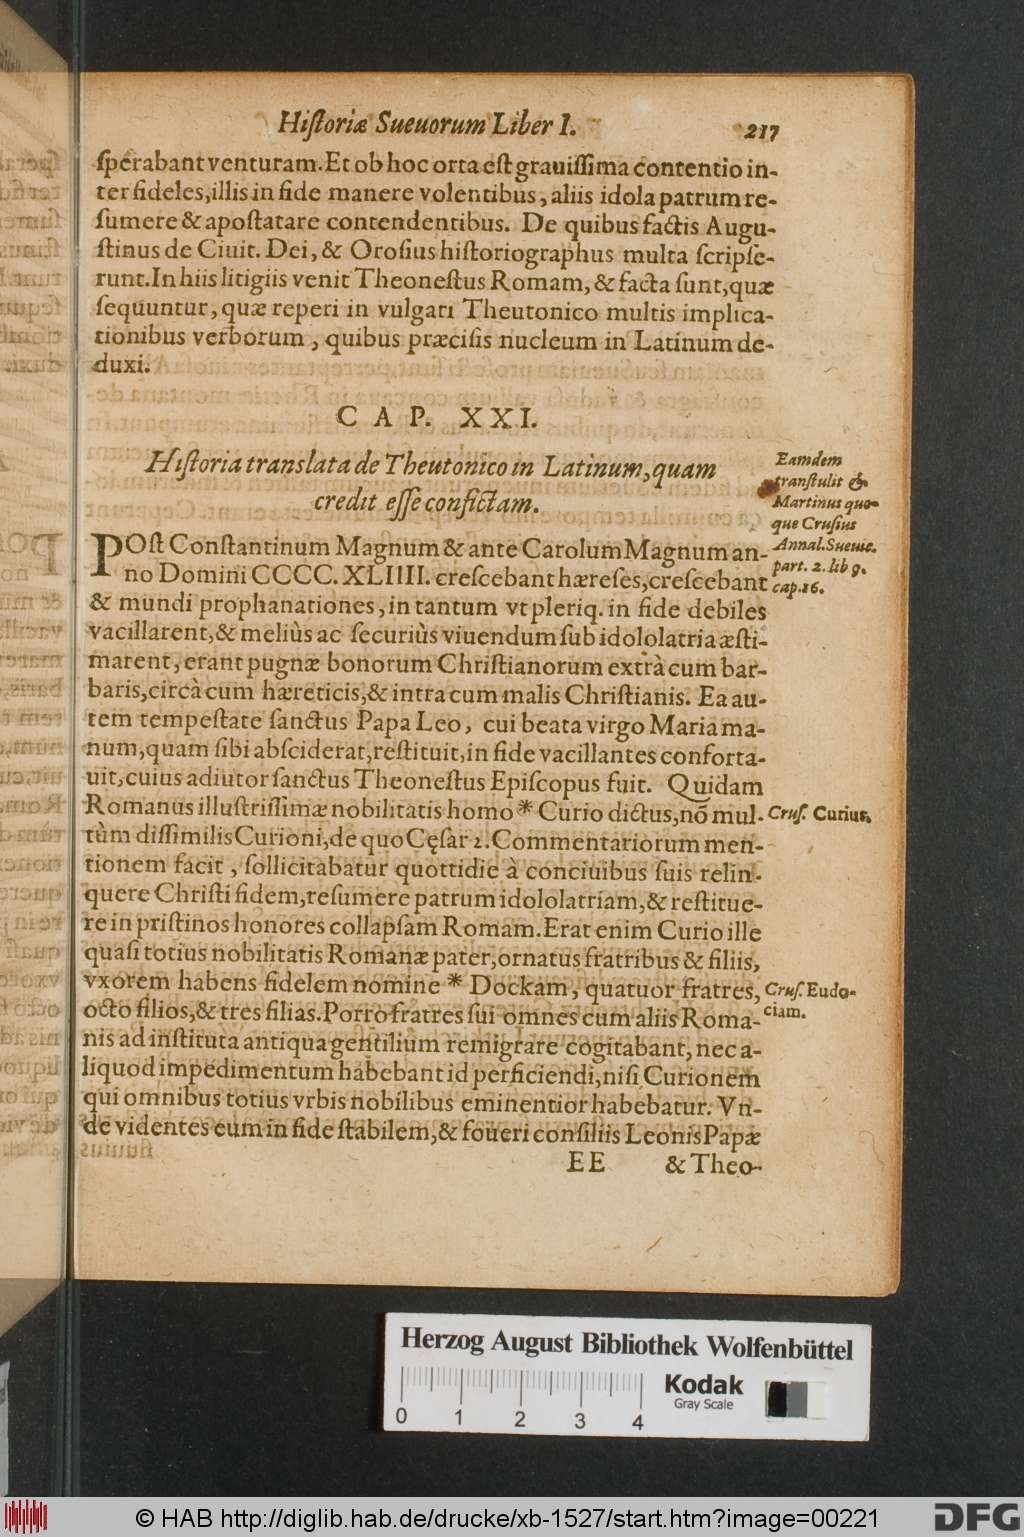 Historiæ Sueuorum Liber I. 217
sperabant venturam. Et ob hoc orta est grauissima contentio in-
ter fideles, illis in fide manere volentibus, aliis idola patrum re-
sumere & apostatare contendentibus. De quibus factis Augu-
stinus de Ciuit. Dei, & Orosius historiographus multa scripse-
runt. In hiis litigiis venit Theonestus Romam, & facta sunt, quæ
sequuntur, quæ reperi in vulgari Theutonico multis implica-
tionibus verborum, quibus præcisis nucleum in Latinum de-
duxi.
CAP. XXI.
Historia translata de Theutonico in Latinum, quam
credit esse confictam.
Eamdem
transtulit &
Martinus quo-
que Crusius
Annal. Sueuic.
part. 2. lib 9.
cap. 16.
POst Constantinum Magnum & ante Carolum Magnum an-
no Domini CCCC. XLIIII. crescebant hæreses, crescebant
& mundi prophanationes, in tantum vt pleriq. in fide debiles
vacillarent, & meliùs ac securiùs viuendum sub idololatria æsti-
marent, erant pugnæ bonorum Christianorum extrà cum bar-
baris, circà cum hæreticis, & intra cum malis Christianis. Ea au-
tem tempestate sanctus Papa Leo, cui beata virgo Maria ma-
num, quam sibi absciderat, restituit, in fide vacillantes conforta-
uit, cuius adiutor sanctus Theonestus Episcopus fuit. Quidam
Romanus illustrissimæ nobilitatis homo * Curio dictus, nõ mul-
Crus. Curius.
tùm dissimilis Curioni, de quo Cęsar 2. Commentariorum men-
tionem facit, sollicitabatur quottidie à conciuibus suis relin-
quere Christi fidem, resumere patrum idololatriam, & restitue-
re in pristinos honores collapsam Romam. Erat enim Curio ille
quasi totius nobilitatis Romanæ pater, ornatus fratribus & filiis,
vxorem habens fidelem nomine * Dockam, quatuor fratres,
Crus. Eudo-
ciam.
octo filios, & tres filias. Porro fratres sui omnes cum aliis Roma-
nis ad instituta antiqua gentilium remigrare cogitabant, nec a-
liquod impedimentum habebant id perficiendi, nisi Curionem
qui omnibus totius vrbis nobilibus eminentior habebatur. Vn-
de videntes eum in fide stabilem, & foueri consiliis Leonis Papæ
EE & Theo-
Herzog August Bibliothek Wolfenbüttel
0 1 2 3 4
Kodak
Gray Scale
© HAB http://diglib.hab.de/drucke/xb-1527/start.htm?image=00221
DFG